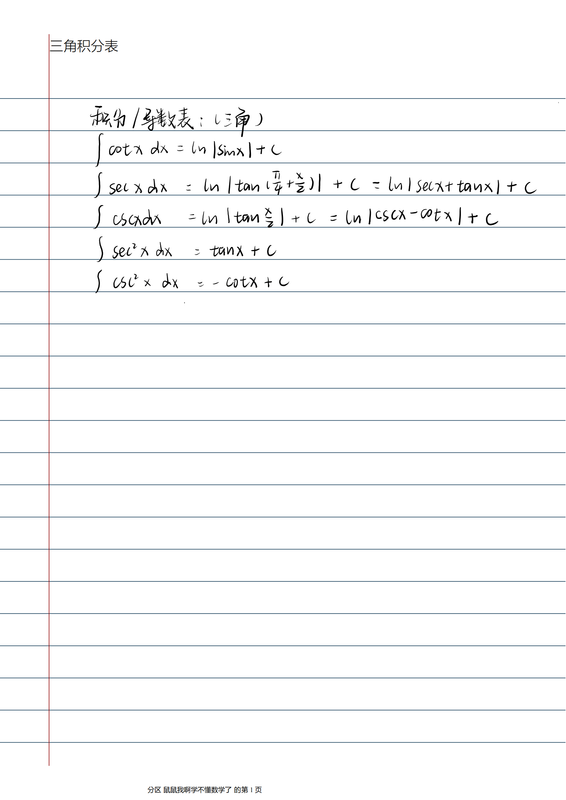 三角积分表
积分/导数表:(三角)
∫ cotx dx = ln |sinx| + C
∫ secx dx = ln |tan(π/4 + x/2)| + C = ln|secx + tanx| + C
∫ cscxdx = ln |tan x/2| + C = ln|cscx - cotx| + C
∫ sec² x dx = tanx + C
∫ csc² x dx = - cotx + C
分区 鼠鼠我啊学不懂数学了 的第 1 页